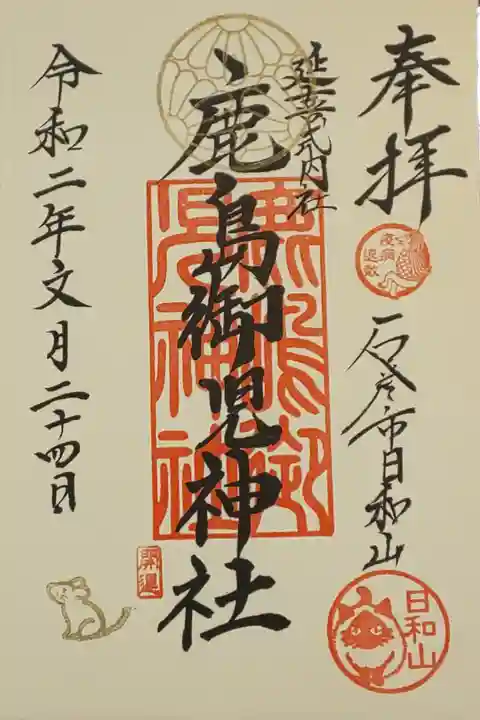 奉拝
疫病退散
石巻市日和山
日和山
延喜式内社
鹿島御児神社
鹿島御児神社
令和二年文月二十四日